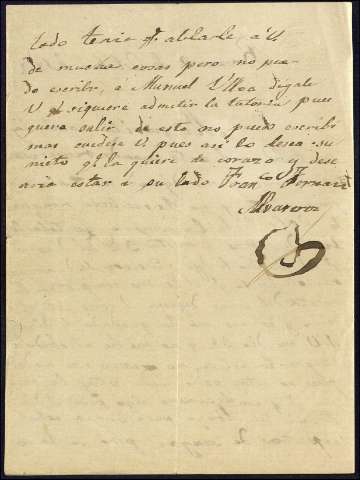 todo tenia q. ablarle, á U
de muchas cosas pero no pue-
do escribir, á Manuel Ulloa digale
U si siquiere admitir la tutoria pues
quera salir de esto no puedo escribir
mas cuidese U pues asi lo desea su
nieto q. la quiere de corazon y dese
aria estar á su lado Fran.co
Alvarez